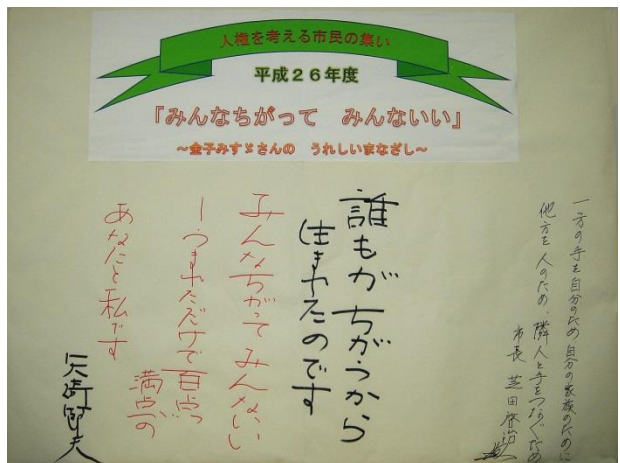 人権を考える市民の集い
平成26年度
「みんなちがって みんないい」
~金子みすゞさんの うれしいまなざし~
一方の手を自分のため 自分の家族のために
他方を人のため、隣人と手をつなぐため
市長 芝田啓治
誰もが ちがうから
生まれたのです
みんなちがって みんないい
ーうまれただけで百点
満点の
あなたと私です
矢崎節夫